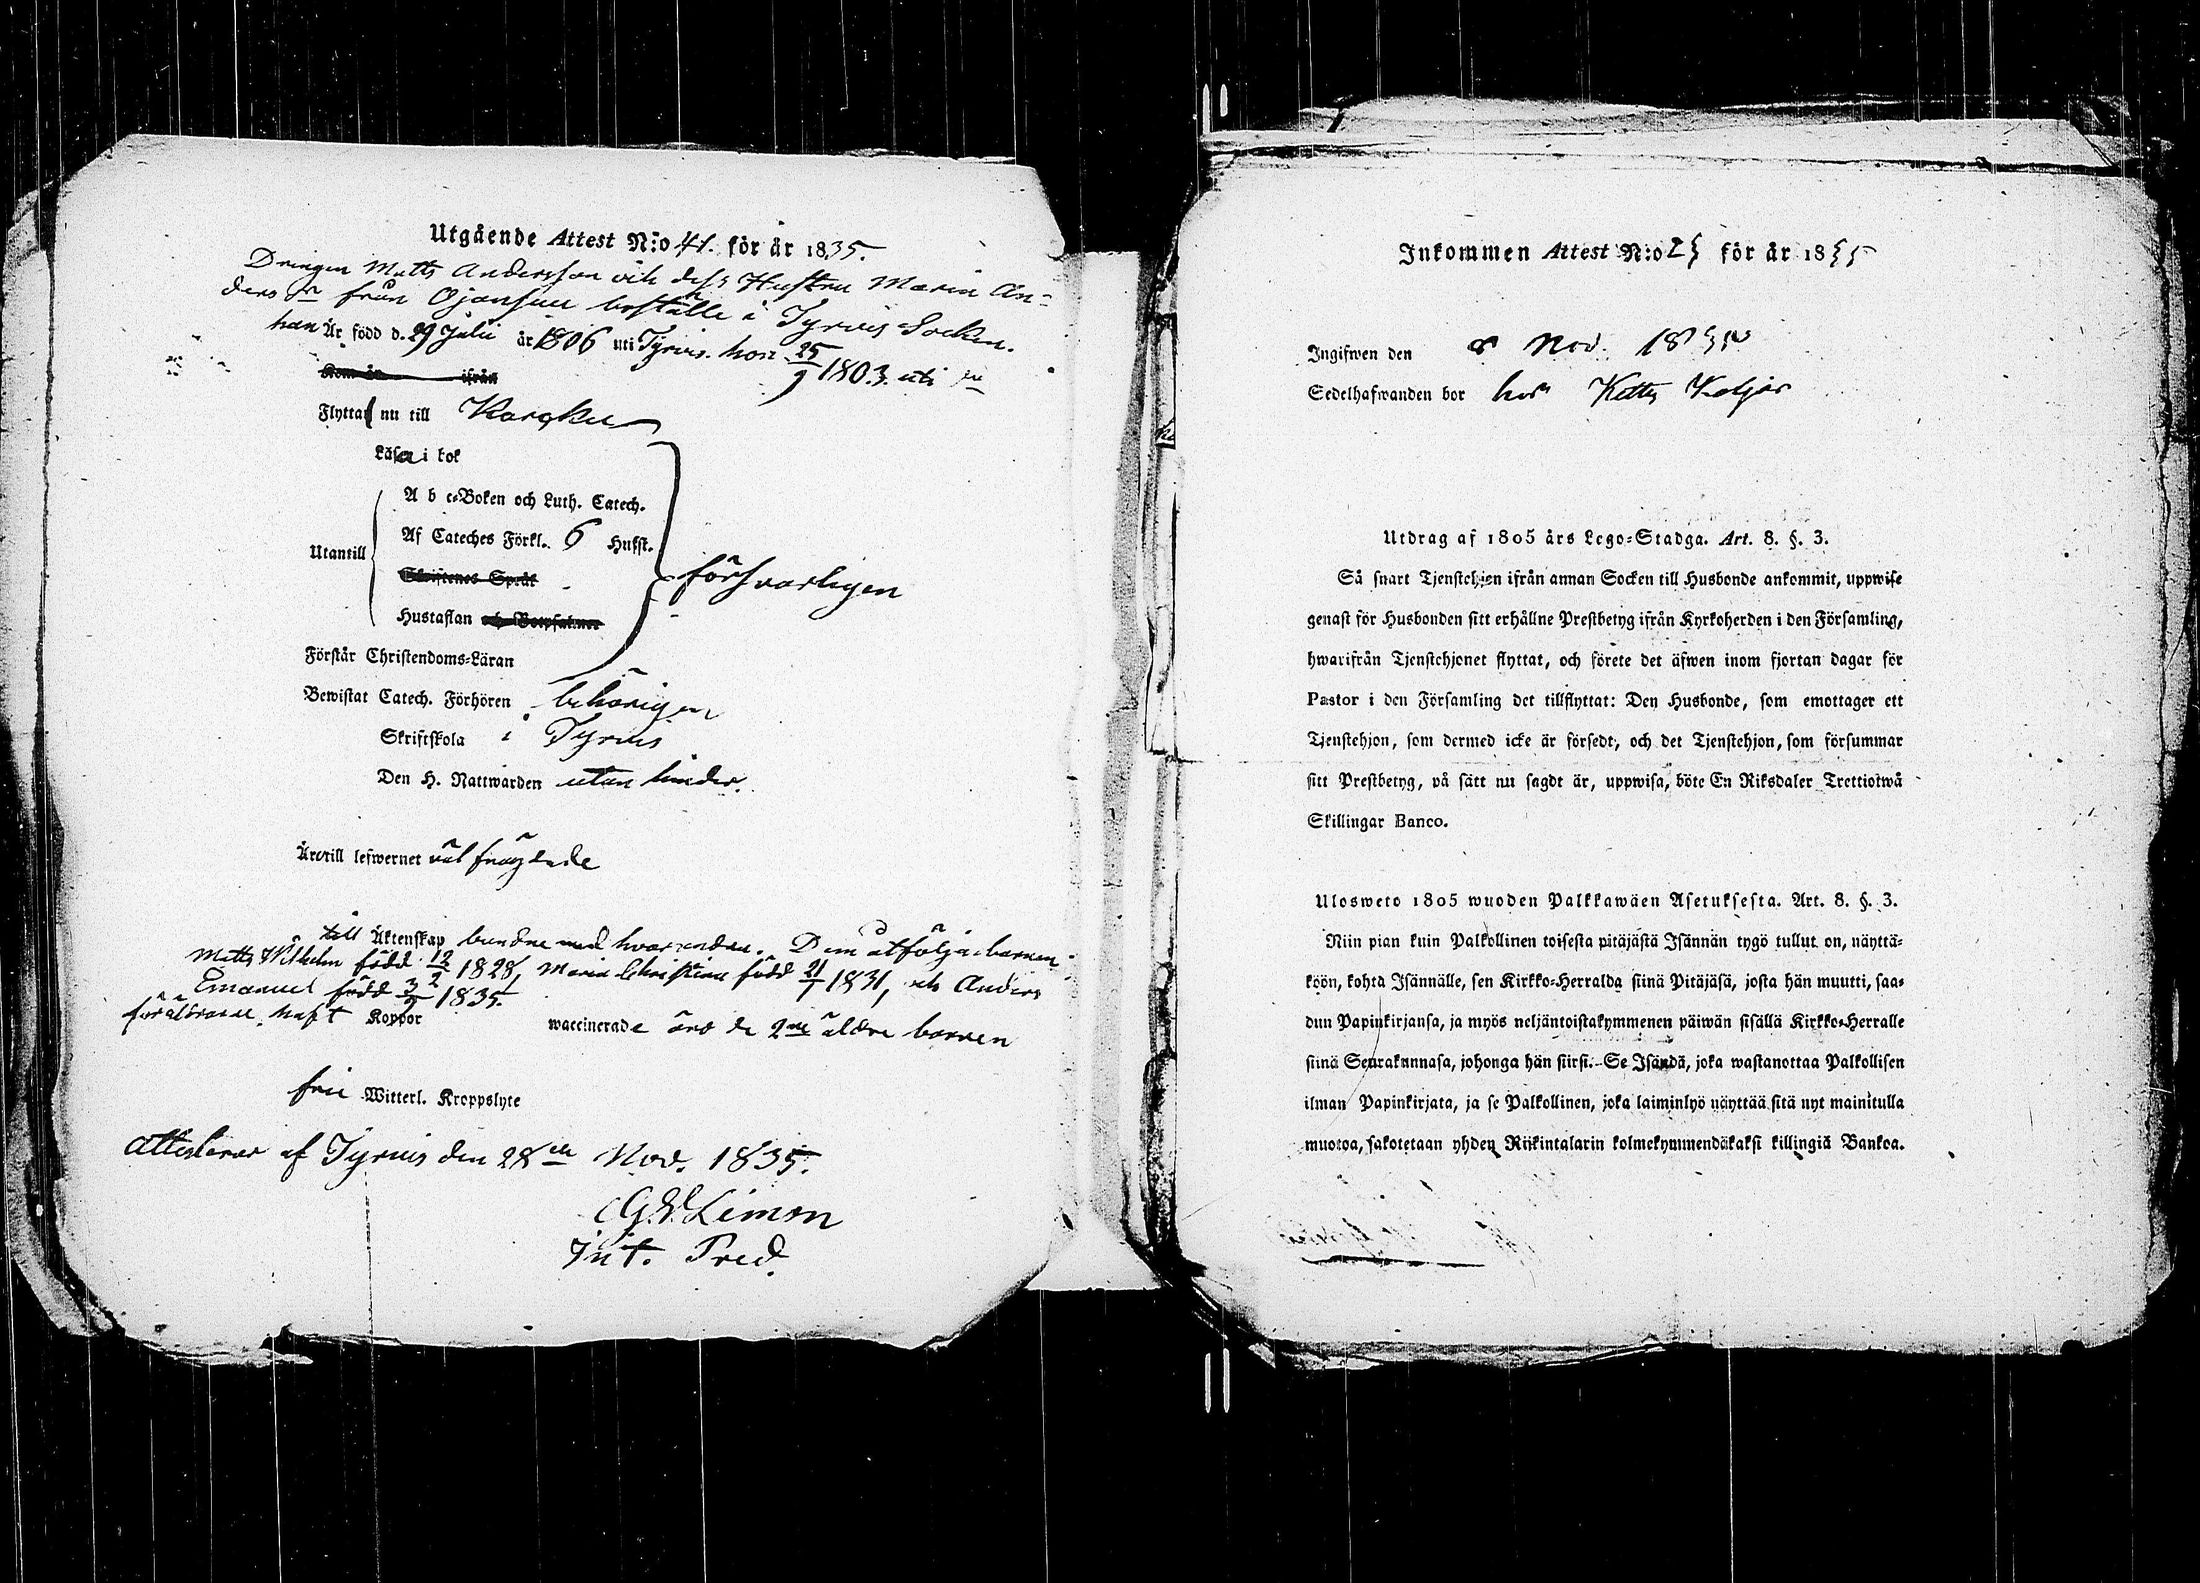 Utgående Attest N:o 41. för år 1835.
Drängen Matts Andersson och dess Hustru Maria An=
ders dr från Ojansuu boställe i Tyrvis Socken.
han Är född d. 29 Julii år 1806 uti Tyrvis. hon 25/9 1803. uti
Kom år ifrån
Flytta nu till Karcku
Läsa i bok
A b c=Boken och Luth. Catech.
Af Cateches Förkl. 6 Hufst.
Utantill
försvarligen
Skriftenes Språk
Hustaflan och Botpsalmer
Förstår Christendoms=Läran
Bewistat Catech. Förhören behörigen
Skriftskola i Tyrvis
Den H. Nattwarden utan hinder.
Äro till lefwernet väl frägdade
till Äktenskap bundne med hvarandra. Dem åtfölja barnen
Matts Wilhelm född 12/2 1828, Maria Christina född 21/7 1831, och Anders
Emanuel född 3/9 1835.
föräldrarne haft Koppor waccinerade äro de 2ne äldre barnen
frie Witterl. Kroppslyte
Attesterar af Tyrvis den 28de Nov. 1835.
Limon
Int. Pred.
Inkommen Attest N:o 25 för år 1835
Ingifwen den Nov. 1835
Sedelhafwanden bor hos
Utdrag af 1805 års Lego=Stadga. Art. 8. §. 3.
Så snart Tjenstehjon ifrån annan Socken till Husbonde ankommit, uppwise
genast för Husbonden sitt erhållne Prestbetyg ifrån Kyrkoherden i den Församling,
hwarifrån Tjenstehjonet flyttat, och förete det äfwen inom fjortan dagar för
Pastor i den Församling det tillflyttat: Den Husbonde, som emottager ett
Tjenstehjon, som dermed icke är försedt, och det Tjenstehjon, som försummar
sitt Prestbetyg, på sätt nu sagdt är, uppwisa, böte En Riksdaler Trettiotwå
Skillingar Banco.
Ulosweto 1805 wuoden Palkkawäen Asetuksesta. Art. 8. §. 3.
Niin pian kuin Palkollinen toisesta pitäjästä Isännän tygö tullut on, näyttä=
köön, kohta Isännälle, sen Kirkko=Herralda siinä Pitäjäsä, josta hän muutti, saa=
dun Papinkirjansa, ja myös neljäntoistakymmenen päiwän sisällä Kirkko=Herralle
siinä Seurakunnasa, johonga hän siirsi. Se Isändä, joka wastanottaa Palkollisen
ilman Papinkirjata, ja se Palkollinen, joka laiminlyö näyttää sitä nyt mainitulla
muotoa, sakotetaan yhden Riikintalarin kolmekymmendäkaksi killingiä Bankoa.